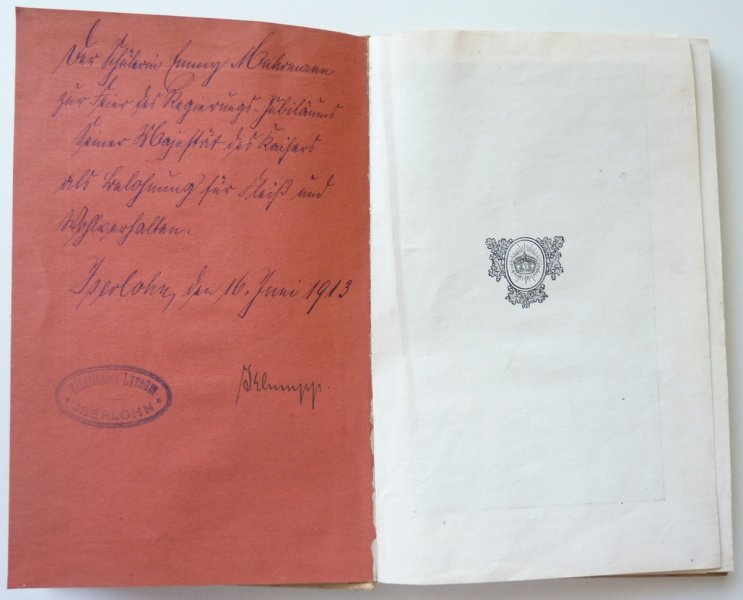 Der Schülerin Emmy Muhrmann
zur Feier des Regierungs-Jubiläums
Seiner Majestät des Kaisers
als Belohnung für Fleiß und
Wohlverhalten.
Iserlohn, den 16. Juni 1913
Klumpp.
Städtisches Lyzeum
• ISERLOHN •